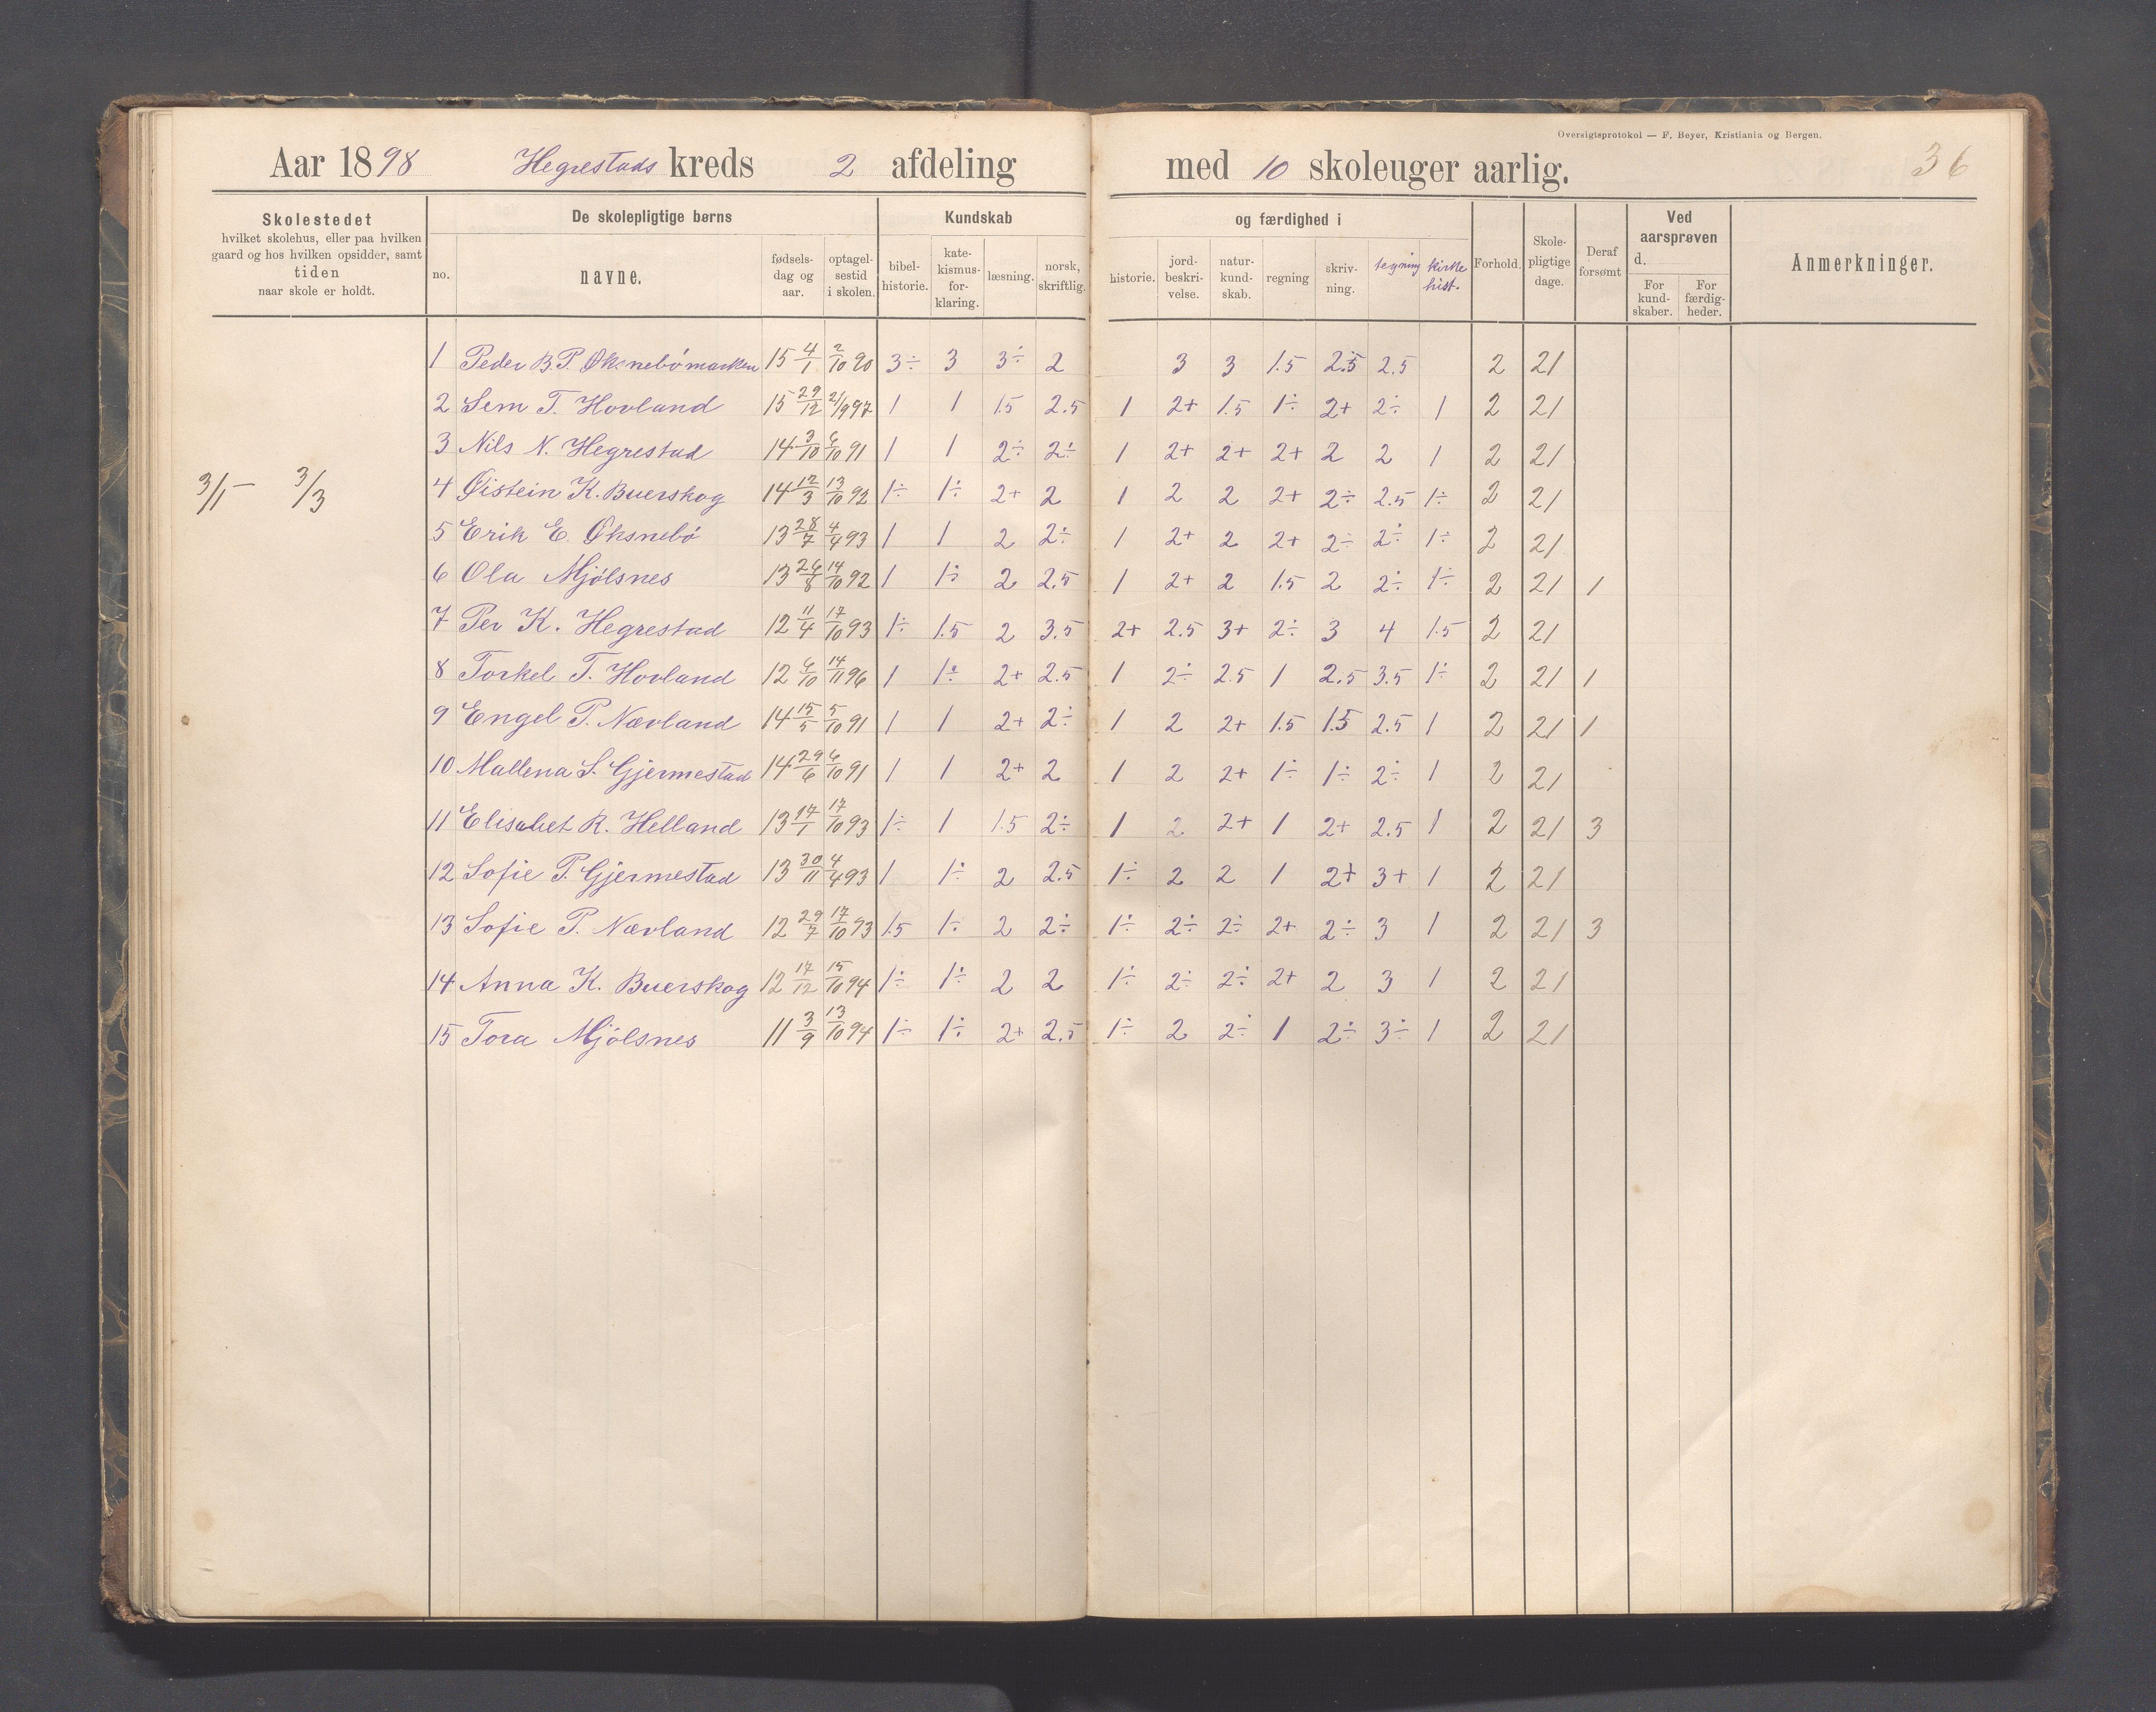 Oversigtsprotokol — F. Beyer, Kristiania og Bergen.
Aar 1898 Hegrestads kreds 2 afdeling med 10 skoleuger aarlig. 36
Skolestedet
hvilket skolehus, eller paa hvilken
gaard og hos hvilken opsidder, samt
tiden
naar skole er holdt.
De skolepligtige børns
no.
navne.
fødsels-
dag og
aar.
optagel-
sestid
i skolen.
Kundskab
bibel-
historie.
kate-
kismus-
for-
klaring.
læsning.
norsk,
skriftlig.
og færdighed i
historie.
jord-
beskri-
velse.
natur-
kund-
skab.
regning
skriv-
ning.
tegning
kirke
hist.
Forhold.
Skole-
pligtige
dage.
Deraf
forsømt
Ved
aarsprøven
d.
For
kund-
skaber.
For
færdig-
heder.
Anmerkninger.
3/1 — 3/3
1 Peder B.P. Øksnebømarken 15 4/1 2/10 90 3÷ 3 3÷ 2 3 3 1.5 2.5 2.5 2 21
2 Sem T. Hovland 15 29/12 21/9 97 1 1 1.5 2.5 1 2+ 1.5 1÷ 2+ 2÷ 1 2 21
3 Nils N. Hegrestad 14 3/10 6/10 91 1 1 2÷ 2÷ 1 2+ 2+ 2+ 2 2 1 2 21
4 Øistein K. Buerskog 14 12/3 13/10 92 1÷ 1÷ 2+ 2 1 2 2 2+ 2÷ 2.5 1÷ 2 21
5 Erik E. Øksnebø 13 28/7 4/4 93 1 1 2 2÷ 1 2+ 2 2+ 2÷ 2÷ 1÷ 2 21
6 Ola Mjølsnes 13 26/8 14/10 92 1 1÷ 2 2.5 1 2+ 2 1.5 2 2÷ 1÷ 2 21 1
7 Per K. Hegrestad 12 11/4 17/10 93 1÷ 1.5 2 3.5 2+ 2.5 3+ 2÷ 3 4 1.5 2 21
8 Torkel T. Hovland 12 6/10 14/11 96 1 1÷ 2+ 2.5 1 2÷ 2.5 1 2.5 3.5 1÷ 2 21 1
9 Engel P. Nævland 14 15/5 5/10 91 1 1 2+ 2÷ 1 2 2+ 1.5 1.5 2.5 1 2 21 1
10 Mallena S. Gjermestad 14 29/6 6/10 91 1 1 2+ 2 1 2 2+ 1÷ 1÷ 2÷ 1 2 21
11 Elisabet R. Helland 13 17/1 17/10 93 1÷ 1 1.5 2÷ 1 2 2+ 1 2+ 2.5 1 2 21 3
12 Sofie P. Gjermestad 13 30/11 4/4 93 1 1÷ 2 2.5 1÷ 2 2 1 2+ 3+ 1 2 21
13 Sofie P. Nævland 12 29/7 17/10 93 1.5 1÷ 2 2÷ 1÷ 2÷ 2÷ 2+ 2÷ 3 1 2 21 3
14 Anna K. Buerskog 12 17/12 15/10 94 1÷ 1÷ 2 2 1÷ 2÷ 2÷ 2+ 2 3 1 2 21
15 Tora Mjølsnes 11 3/9 13/10 94 1÷ 1÷ 2+ 2.5 1÷ 2 2÷ 1 2÷ 3÷ 1 2 21